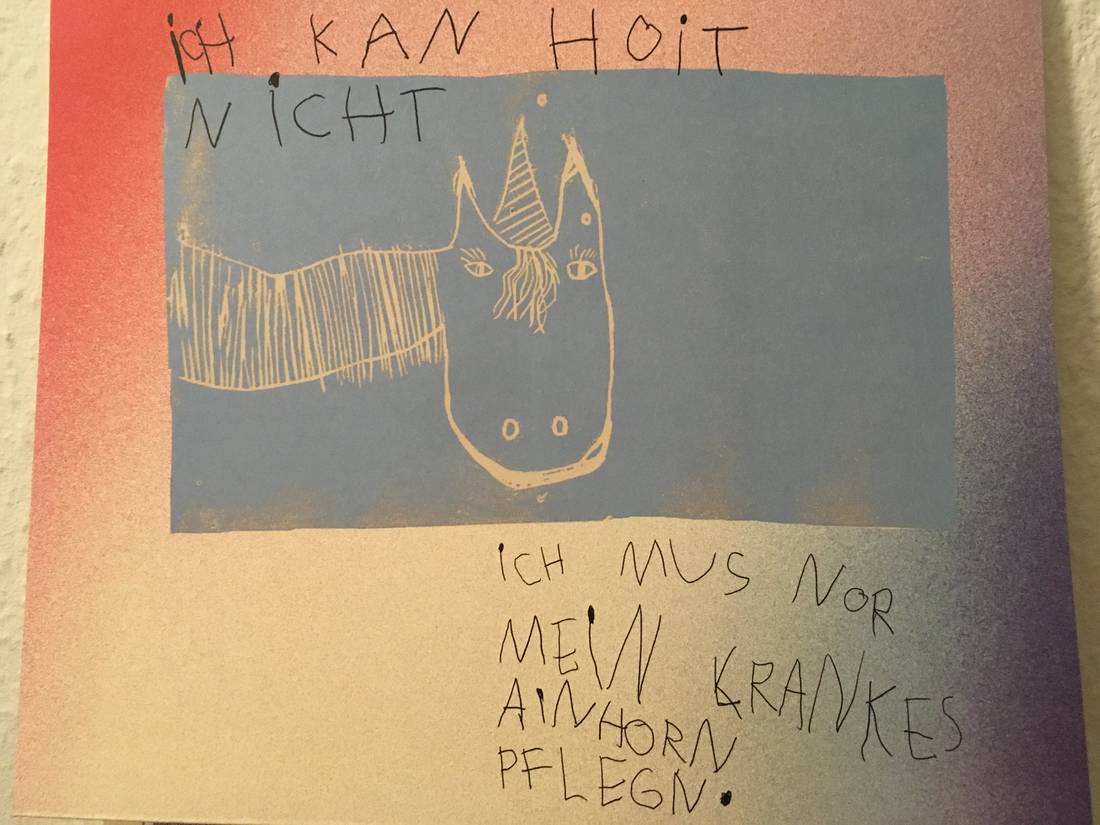 iCH KAN HOiT
NiCHT
iCH MUS NOR
MEiN KRANKES
AiNHORN
PFLEGN.